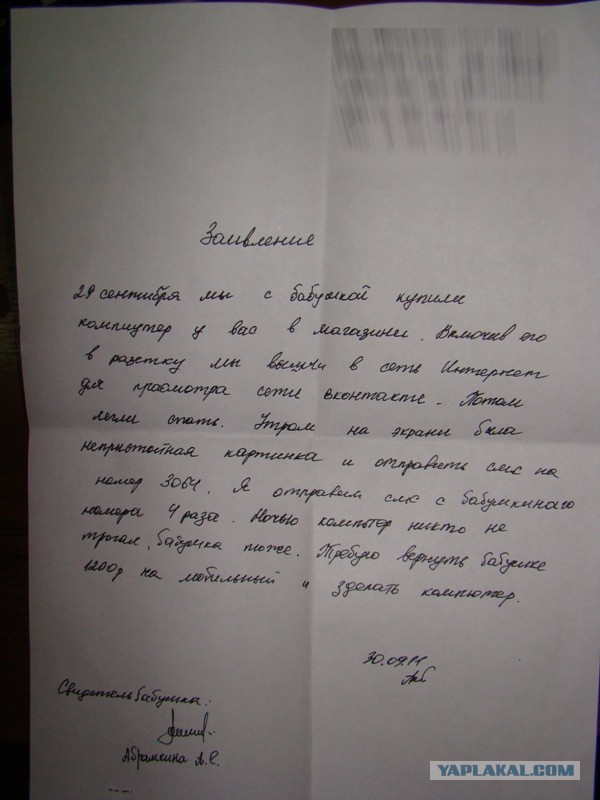 Заивление
29 сентибря мы с бабушкой купили
компиутер у вас в магазини. Включив его
в разетку мы вышли в сеть Интернет
для просмотра сети вконтакте. Потом
легли спать. Утром на экрани была
непристойная картинка и отправить смс на
номер 3064. Я отправил смс с бабушкиного
номера 4 раза. Ночью компьтор никто не
трогал, бабушка тоже. Требую вернуть бабушке
1200р на мобильный и зделать компютер.
30.09.11
Свидетель бабушка:
Абрамкина А.С.
YAPLAKAL.COM